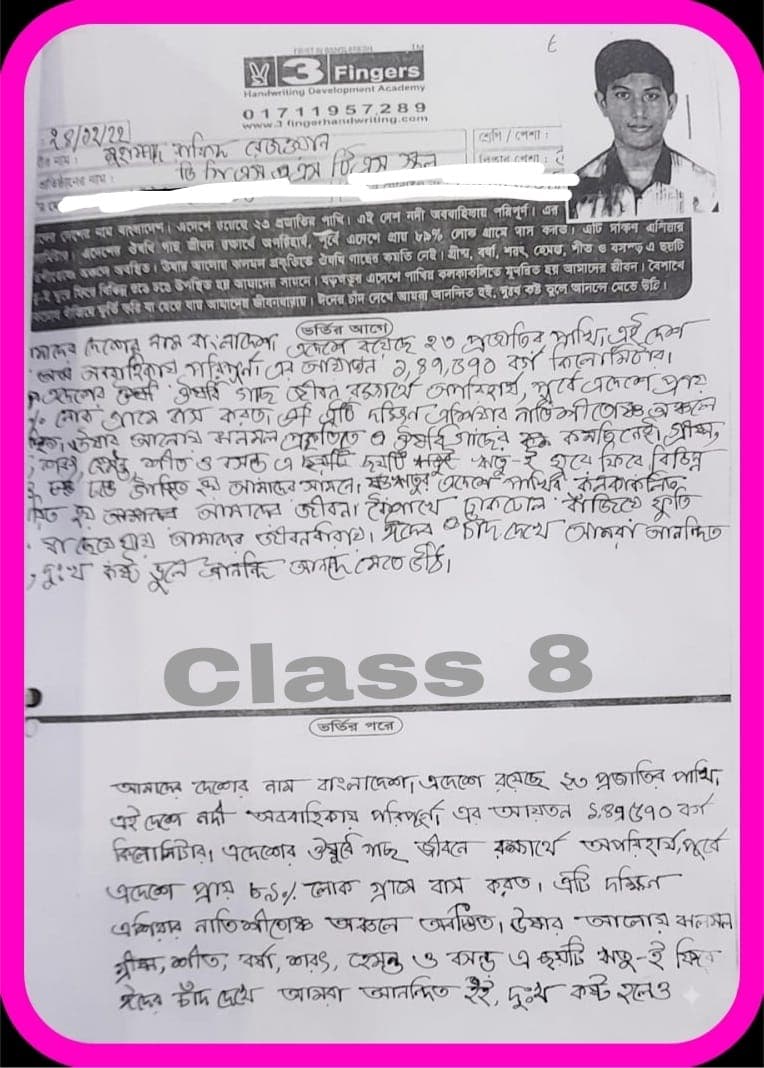 FIRST IN BANGLADESH TM
3 Fingers
Handwriting Development Academy
01711957289
www.3fingerhandwriting.com
২৪/০২/২২
নাম :
মুহাম্মদ রাফিদ রেজওয়ান
শ্রেণি / পেশা :
প্রতিষ্ঠানের নাম :
স্কুল
দেশের নাম বাংলাদেশ। এদেশে রয়েছে ২৩ প্রজাতির পাখি। এই দেশ নদী অববাহিকায় পরিপূর্ণ। এর
এদেশের ঔষধি গাছ জীবন রক্ষার্থে অপরিহার্য, পূর্বে এদেশে প্রায় ৮৯% লোক গ্রামে বাস করত। এটি দক্ষিণ এশিয়ার
অঞ্চলে অবস্থিত। উষার আলোয় ঝলমল প্রকৃতিতে ঔষধি গাছের কমতি নেই। গ্রীষ্ম, বর্ষা, শরৎ, হেমন্ত, শীত ও বসন্ত এ ছয়টি
ঘুরে ফিরে বিভিন্ন ঢঙে উপস্থিত হয় আমাদের সামনে। ষড়ঋতুর এদেশে পাখির কলকাকলিতে মুখরিত হয় আমাদের জীবন। বৈশাখে
বাজিয়ে ফূর্তি বয়ে যায় আমাদের জীবনধারায়। ঈদের চাঁদ দেখে আমরা আনন্দিত হই, দুঃখ কষ্ট ভুলে আনন্দে মেতে উঠি।
ভর্তির আগে
দেশের নাম বাংলাদেশ। এদেশে রয়েছে ২৩ প্রজাতির পাখি। এই দেশ
অববাহিকায় পরিপূর্ণ। এর আয়তন ১,৪৭,৫৭০ বর্গ কিলোমিটার।
এদেশের ঔষধি গাছ জীবন রক্ষার্থে অপরিহার্য, পূর্বে এদেশে প্রায়
% লোক গ্রামে বাস করত। এটি দক্ষিণ এশিয়ার নাতিশীতোষ্ণ অঞ্চলে
উষার আলোয় ঝলমল প্রকৃতিতে এ ঔষধি গাছের কমতি নেই। গ্রীষ্ম,
শরৎ, হেমন্ত, শীত ও বসন্ত এ ছয়টি ঋতু-ই ঘুরে ফিরে বিভিন্ন
হয় আমাদের সামনে। ষড়ঋতুর এদেশে পাখির কলকাকলিতে
হয় আমাদের জীবন। বৈশাখে ঢাকঢোল বাজিয়ে ফূর্তি
বয়ে যায় আমাদের জীবনধারায়। ঈদের চাঁদ দেখে আমরা আনন্দিত
, দুঃখ কষ্ট ভুলে আনন্দে মেতে উঠি।
Class 8
ভর্তির পরে
আমাদের দেশের নাম বাংলাদেশ। এদেশে রয়েছে ২৩ প্রজাতির পাখি,
এই দেশে নদী অববাহিকায় পরিপূর্ণ। এর আয়তন ১,৪৭৫৭০ বর্গ
কিলোমিটার। এদেশের ঔষুধি গাছ জীবন রক্ষার্থে অপরিহার্য, পূর্বে
এদেশে প্রায় ৮৯% লোক গ্রামে বাস করত। এটি দক্ষিন
এশিয়ার নাতিশীতোষ্ণ অঞ্চলে অবস্থিত। উষার আলোয় ঝলমল
গ্রীষ্ম, শীত, বর্ষা, শরৎ, হেমন্ত ও বসন্ত এ ছয়টি ঋতু-ই ফিরে
ঈদের চাঁদ দেখে আমরা আনন্দিত হই, দুঃখ কষ্ট হলেও